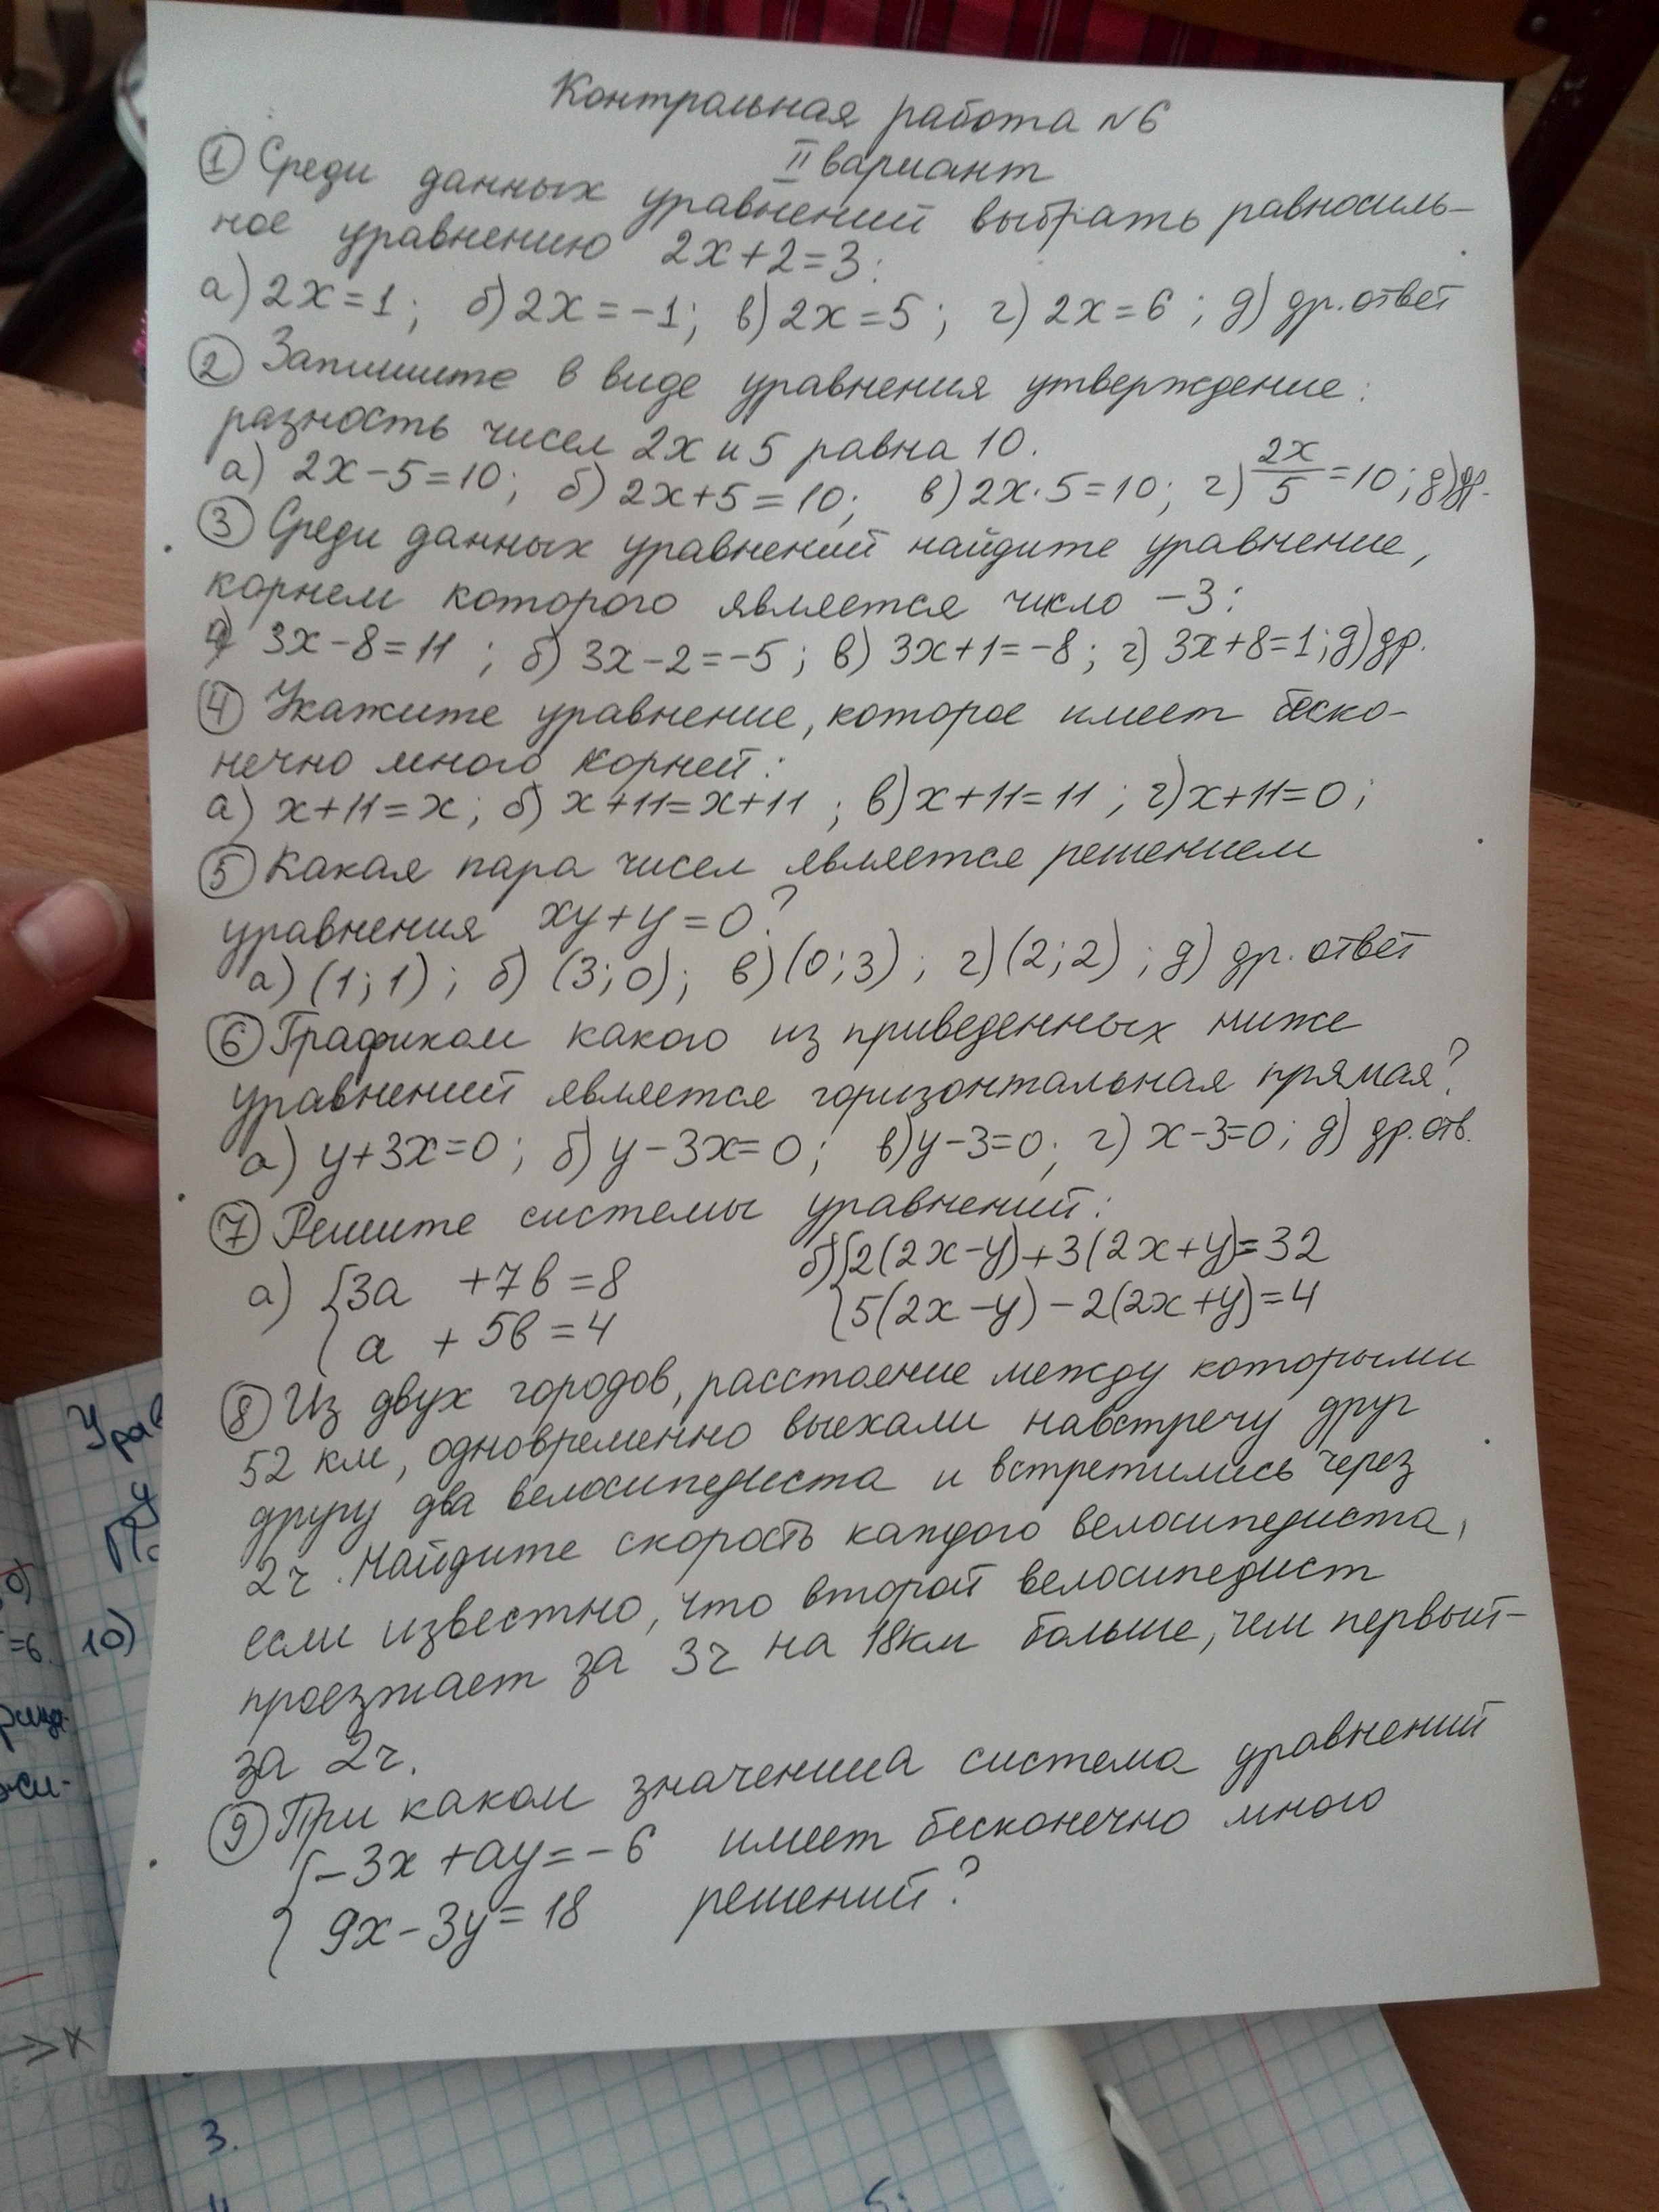 Контрольная работа №6
II вариант
① Среди данных уравнений выбрать равносиль-
ное уравнению 2x+2=3:
а) 2x=1; б) 2x=-1; в) 2x=5; г) 2x=6; д) др. ответ
② Запишите в виде уравнения утверждение:
разность чисел 2x и 5 равна 10.
а) 2x-5=10; б) 2x+5=10; в) 2x·5=10; г) 2x/5=10; д) др.
③ Среди данных уравнений найдите уравнение,
корнем которого является число -3:
а) 3x-8=11; б) 3x-2=-5; в) 3x+1=-8; г) 3x+8=1; д) др.
④ Укажите уравнение, которое имеет беско-
нечно много корней:
а) x+11=x; б) x+11=x+11; в) x+11=11; г) x+11=0;
⑤ Какая пара чисел является решением
уравнения xy+y=0?
а) (1;1); б) (3;0); в) (0;3); г) (2;2); д) др. ответ
⑥ Графиком какого из приведенных ниже
уравнений является горизонтальная прямая?
а) y+3x=0; б) y-3x=0; в) y-3=0; г) x-3=0; д) др. отв.
⑦ Решите системы уравнений:
а) {3a +7b=8 б) {2(2x-y)+3(2x+y)=32
{a + 5b=4 {5(2x-y)-2(2x+y)=4
⑧ Из двух городов, расстояние между которыми
52 км, одновременно выехали навстречу друг
другу два велосипедиста и встретились через
2ч. Найдите скорость каждого велосипедиста,
если известно, что второй велосипедист
проезжает за 3ч на 18км больше, чем первый-
за 2ч.
⑨ При каком значении а система уравнений
{-3x+ay=-6 имеет бесконечно много
{9x-3y=18 решений?
Урав
=6. 10)
3.